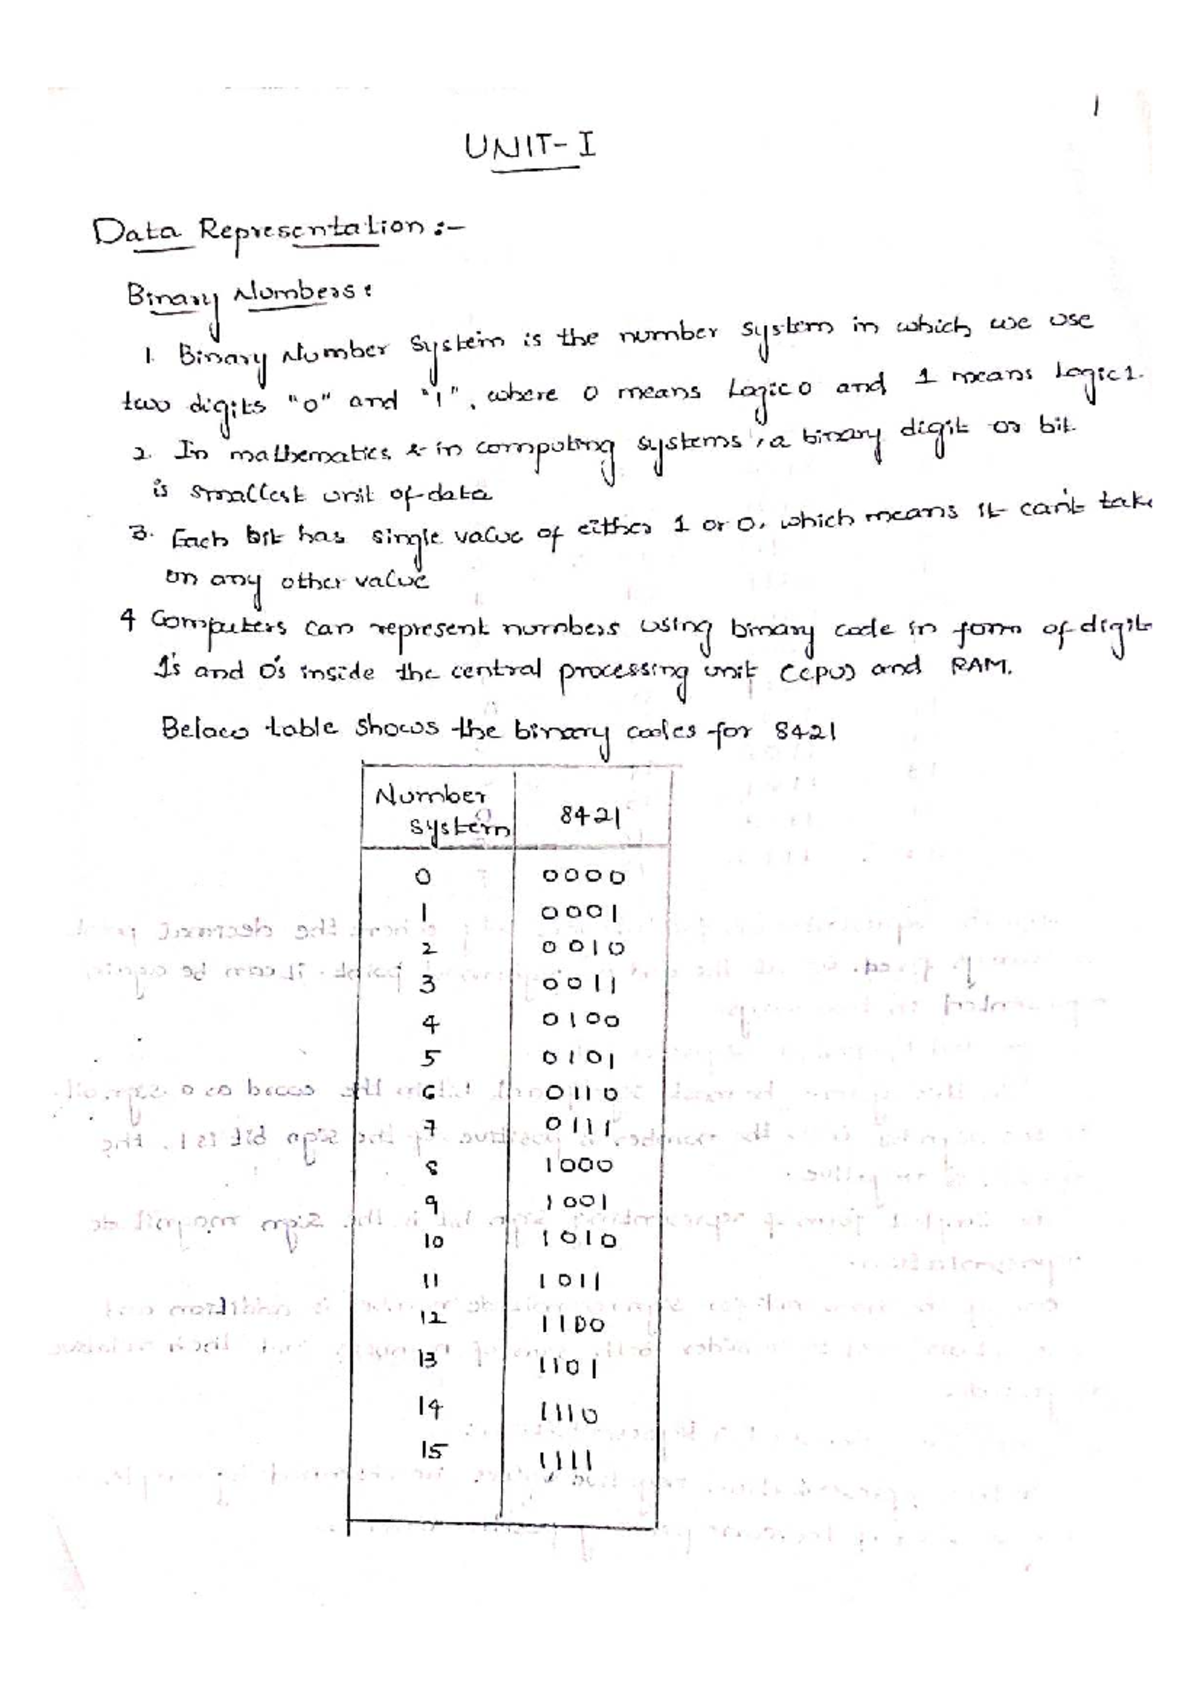 1
UNIT-I
Data Representation :-
Binary Numbers :
1. Binary Number System is the number system in which we use
two digits "0" and "1", where 0 means Logic 0 and 1 means Logic 1.
2. In mathematics & in computing systems, a binary digit or bit
is smallest unit of data
3. Each bit has single value of either 1 or 0, which means it can't take
on any other value
4 Computers can represent numbers using binary code in form of digit
1's and 0's inside the central processing unit (CPU) and RAM.
Below table shows the binary codes for 8421
Number system 8421
0 0000
1 0001
2 0010
3 0011
4 0100
5 0101
6 0110
7 0111
8 1000
9 1001
10 1010
11 1011
12 1100
13 1101
14 1110
15 1111